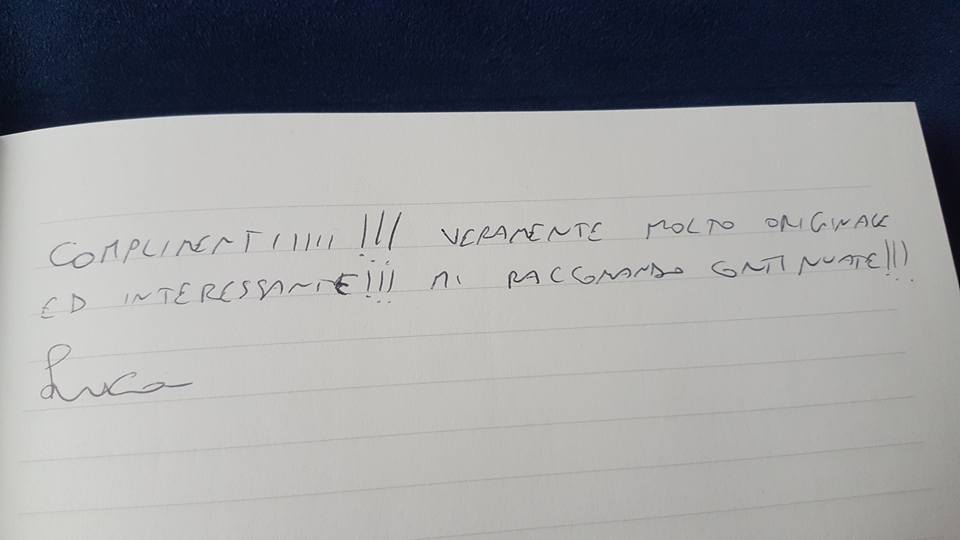 COMPLIMENTIIIIII !!! VERAMENTE MOLTO ORIGINALE
ED INTERESSANTE!!! MI RACCOMANDO CONTINUATE!!!
Luca